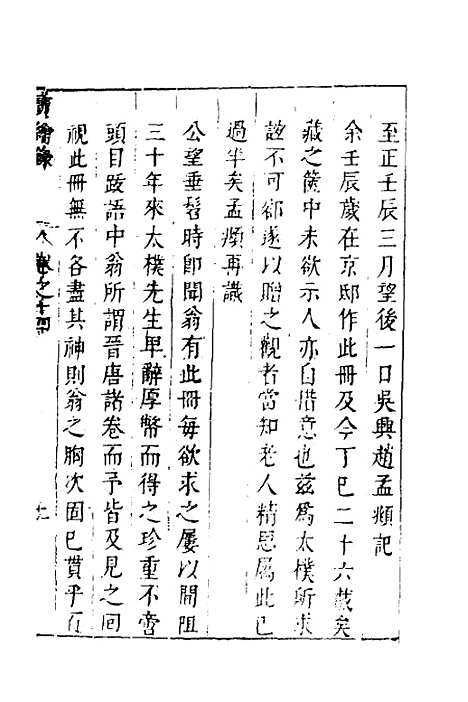 至正壬辰三月望後一日吳興趙孟頫記
余壬辰歲在京邸作此冊及今丁巳二十六載矣
藏之篋中未欲示人亦自惜意也茲爲太樸所求
誼不可卻遂以贈之觀者當知老人精思屬此已
過半矣孟頫再識
公望垂髫時卽聞翁有此冊每欲求之屢以間阻
三十年來太樸先生卑辭厚幣而得之珍重不啻
頭目跋語中翁所謂晉唐諸卷而予皆及見之回
視此冊無不各盡其神則翁之胸次固已貫乎百
寶繪錄
卷之十四